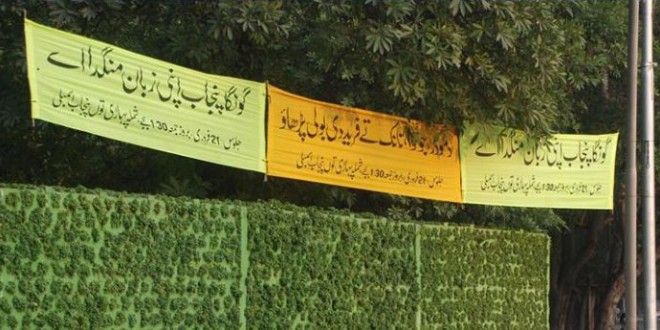 گونگا پنجاب اپنی زبان منگدا اے
جلوس: 21 فروری، بروز جمعہ 1:30 بجے، شملہ پہاڑی توں پنجاب اسمبلی
نانک تے فرید دی بولی پڑھاؤ
جلوس: 21 فروری، بروز جمعہ 1:30 بجے، شملہ پہاڑی توں پنجاب اسمبلی
گونگا پنجاب اپنی زبان منگدا اے
جلوس: 21 فروری، بروز جمعہ 1:30 بجے، شملہ پہاڑی توں پنجاب اسمبلی